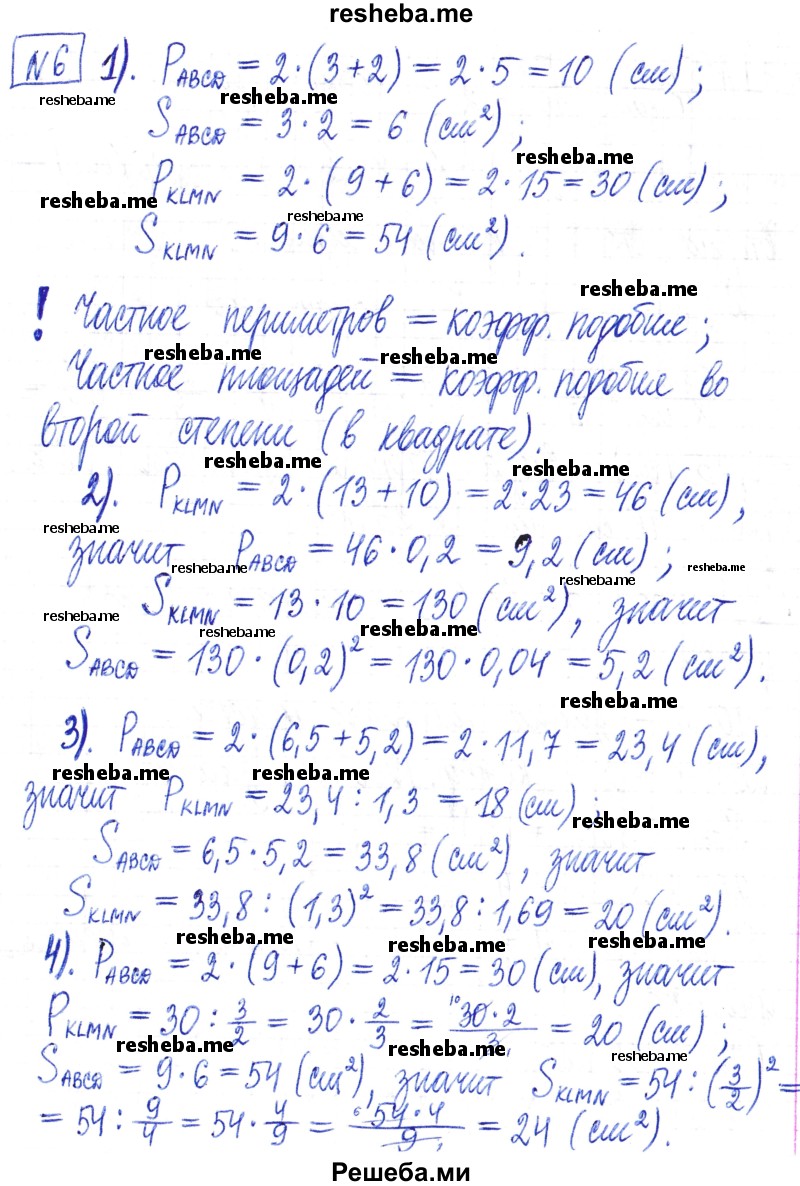 resheba.me
№6 1). P_ABCD = 2·(3+2) = 2·5 = 10 (см);
resheba.me resheba.me
S_ABCD = 3·2 = 6 (см²);
resheba.me
P_KLMN = 2·(9+6) = 2·15 = 30 (см);
resheba.me resheba.me
S_KLMN = 9·6 = 54 (см²).
resheba.me
! Частное периметров = коэфф. подобия;
resheba.me resheba.me
Частное площадей = коэфф. подобия во
второй степени (в квадрате).
resheba.me resheba.me
2). P_KLMN = 2·(13+10) = 2·23 = 46 (см),
resheba.me
значит P_ABCD = 46·0,2 = 9,2 (см);
resheba.me resheba.me resheba.me
S_KLMN = 13·10 = 130 (см²), значит
resheba.me resheba.me resheba.me
S_ABCD = 130·(0,2)² = 130·0,04 = 5,2 (см²).
resheba.me
3). P_ABCD = 2·(6,5+5,2) = 2·11,7 = 23,4 (см),
resheba.me resheba.me
значит P_KLMN = 23,4 : 1,3 = 18 (см);
resheba.me
S_ABCD = 6,5·5,2 = 33,8 (см²), значит
S_KLMN = 33,8 : (1,3)² = 33,8 : 1,69 = 20 (см²).
resheba.me resheba.me resheba.me
4). P_ABCD = 2·(9+6) = 2·15 = 30 (см), значит
P_KLMN = 30 : 3/2 = 30 · 2/3 = 10 30·2/3 = 20 (см);
resheba.me resheba.me resheba.me
S_ABCD = 9·6 = 54 (см²), значит S_KLMN = 54 : (3/2)² =
= 54 : 9/4 = 54 · 4/9 = 6 54·4/9 = 24 (см²).
Решеба.ми